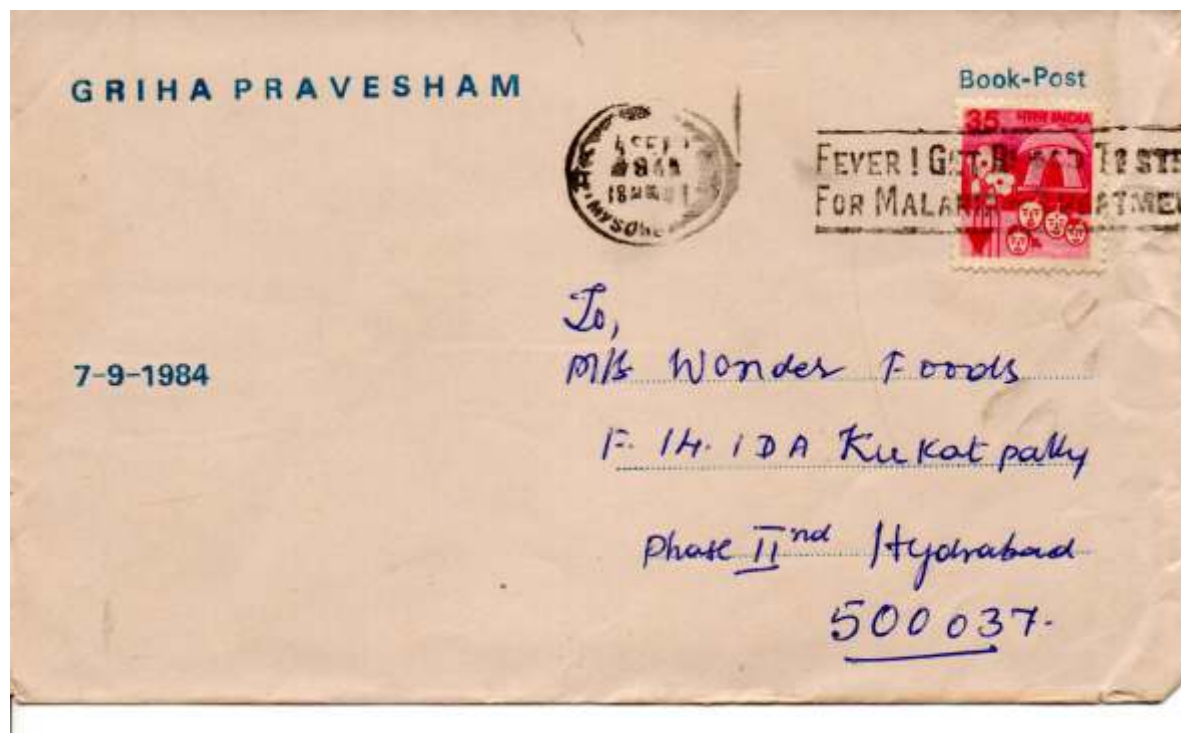 GRIHA PRAVESHAM
Book-Post
35 भारत INDIA
4 SEP
1984
MYSORE
FEVER ! GET BLOOD TESTE
FOR MALARIA TREATMEN
7-9-1984
To,
M/s Wonder Foods
F. 14. IDA Kukatpally
Phase IInd Hydrabad
500 037.